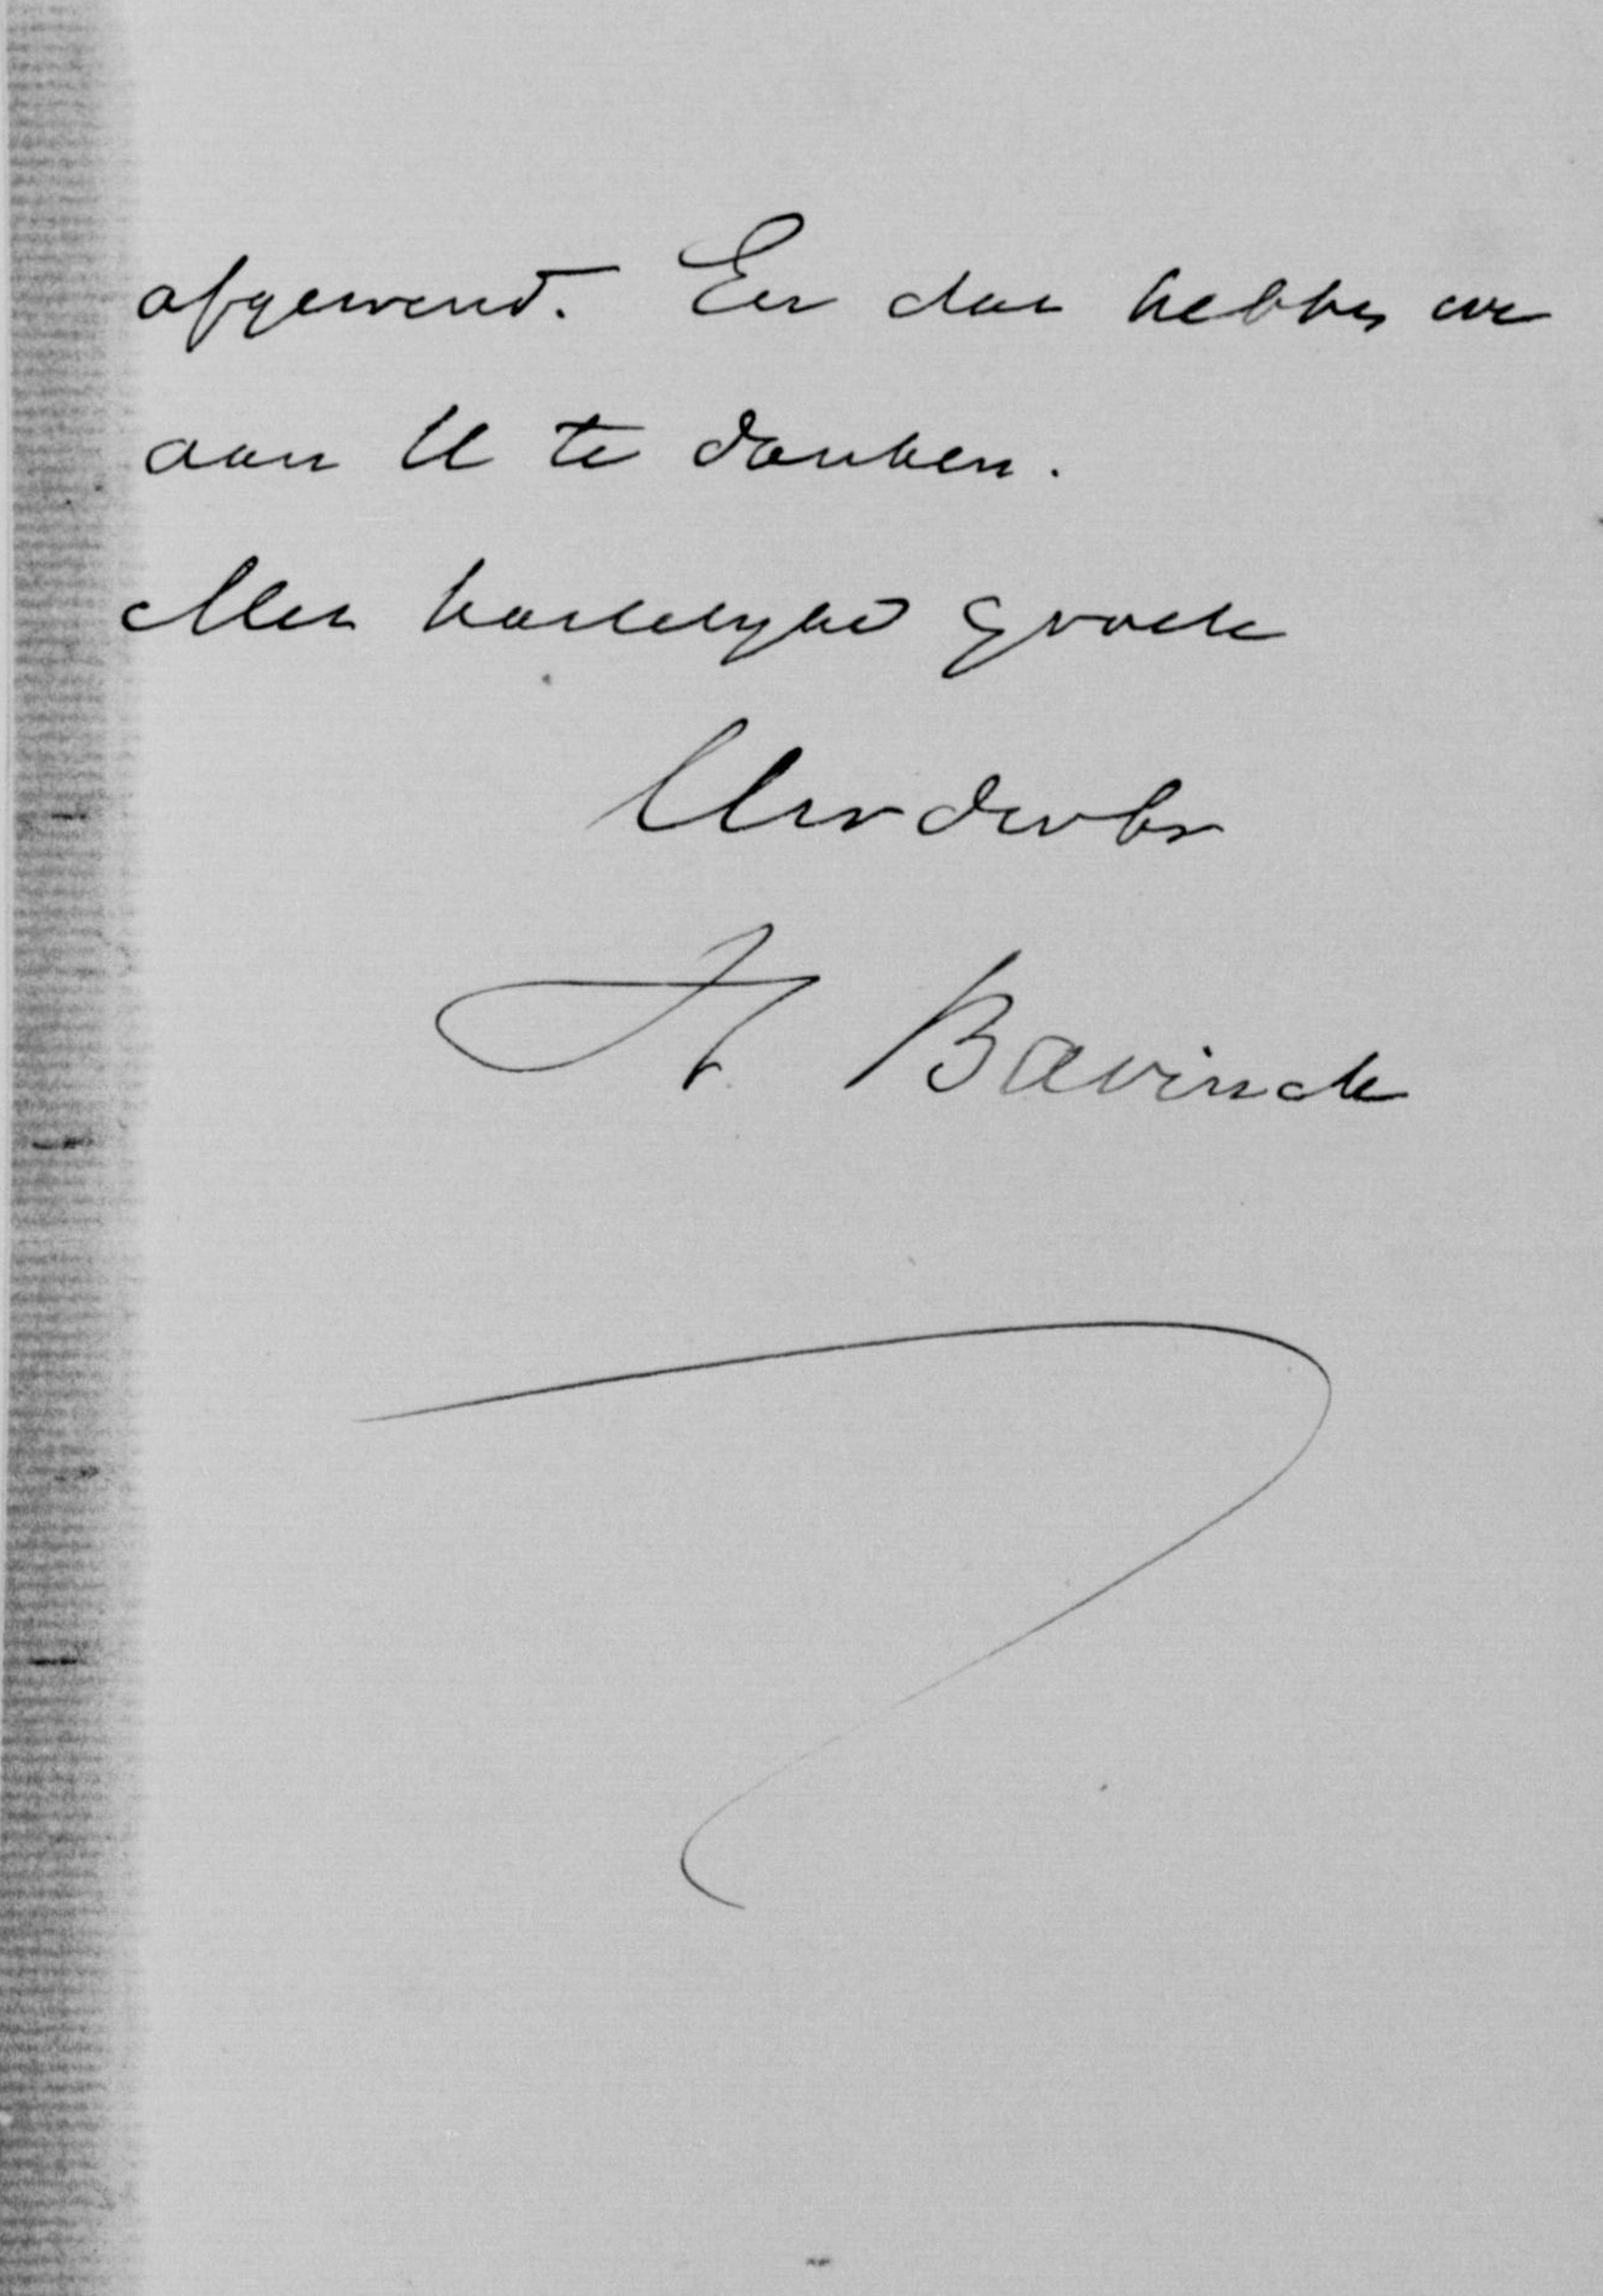 afgewend. En dat hebben we
aan U te danken.
Met hartelyke groete
Uw dw br
H Bavinck